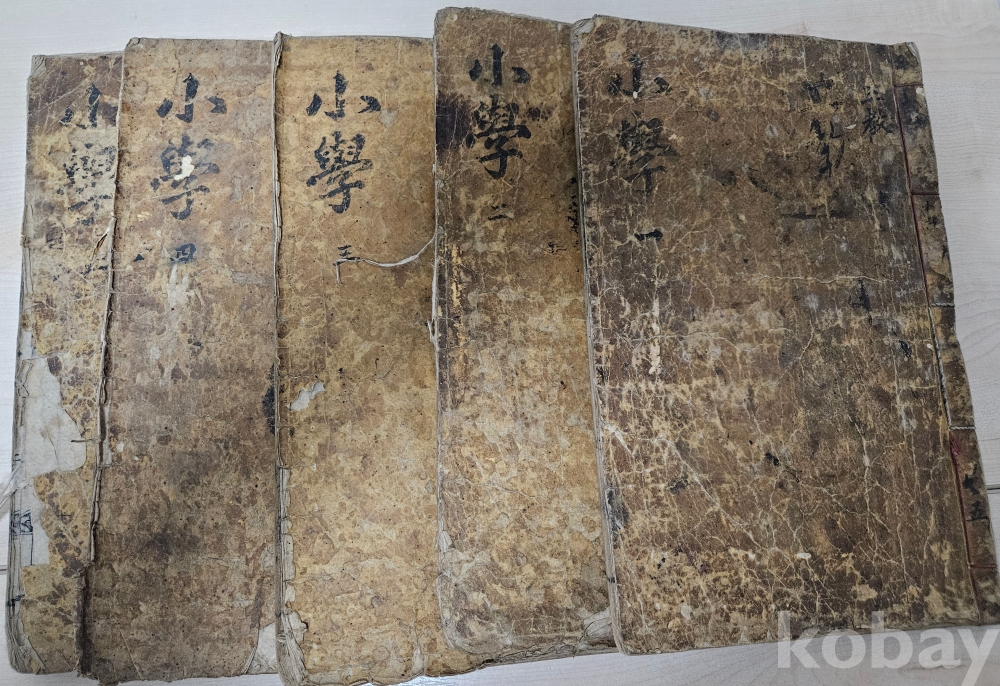 小學 一
小學 二
小學 三
小學 四
小學
教
五
kobay